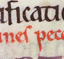 ificatio
ines pecc